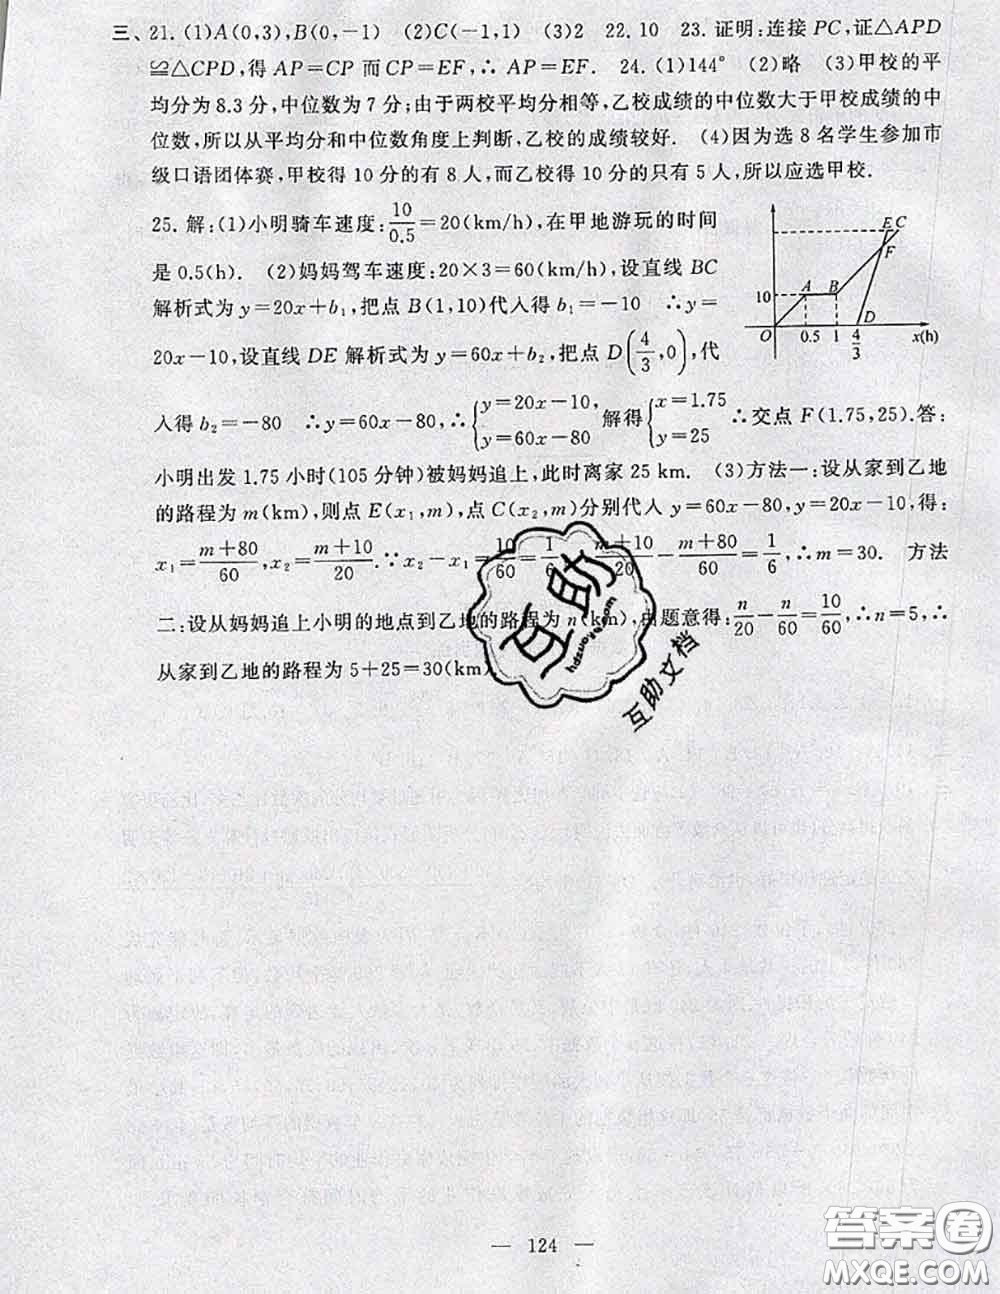 三、21. (1)A(0,3),B(0,-1) (2)C(-1,1) (3)2 22. 10 23. 证明:连接 PC,证△APD
≌△CPD,得 AP=CP 而 CP=EF,∴ AP=EF. 24. (1)144° (2)略 (3)甲校的平
均分为 8.3 分,中位数为 7 分;由于两校平均分相等,乙校成绩的中位数大于甲校成绩的中
位数,所以从平均分和中位数角度上判断,乙校的成绩较好. (4)因为选 8 名学生参加市
级口语团体赛,甲校得 10 分的有 8 人,而乙校得 10 分的只有 5 人,所以应选甲校.
25. 解:(1)小明骑车速度:10/0.5=20(km/h),在甲地游玩的时间
是 0.5(h). (2)妈妈驾车速度:20×3=60(km/h),设直线 BC
解析式为 y=20x+b₁,把点 B(1,10)代人得 b₁=-10 ∴y=
20x-10,设直线 DE 解析式为 y=60x+b₂,把点 D(4/3,0),代
人得 b₂=-80 ∴y=60x-80,∴{y=20x-10, y=60x-80 解得{x=1.75 y=25 ∴交点 F(1.75,25).答:
小明出发 1.75 小时(105 分钟)被妈妈追上,此时离家 25 km. (3)方法一:设从家到乙地
的路程为 m(km),则点 E(x₁,m),点 C(x₂,m)分别代人 y=60x-80,y=20x-10,得:
x₁=m+80/60,x₂=m+10/20.∵x₂-x₁=10/60=1/6,∴m+10/20-m+80/60=1/6,∴m=30. 方法
二:设从妈妈追上小明的地点到乙地的路程为 n(km),由题意得:n/20-n/60=10/60,∴n=5,∴
从家到乙地的路程为 5+25=30(km)
E C
F
A B
10
D
O 0.5 1 4/3 x(h)
互助
hdzuoye.com
互助文档
— 124 —
答案圈
MXQE.COM